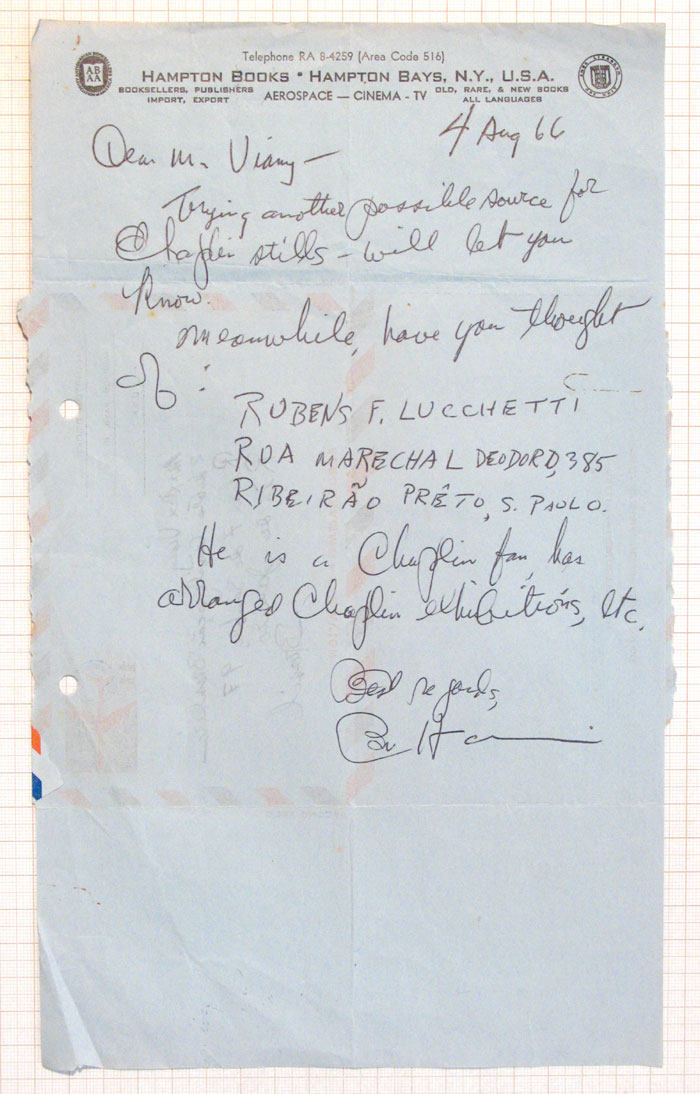 Telephone RA 8-4259 (Area Code 516)
AB
AA
HAMPTON BOOKS • HAMPTON BAYS, N.Y., U.S.A.
BOOKSELLERS, PUBLISHERS
IMPORT, EXPORT
AEROSPACE — CINEMA - TV
OLD, RARE, & NEW BOOKS
ALL LANGUAGES
4 Aug 66
Dear Mr. Viany —
Trying another possible source for
Chaplin stills – will let you
know.
Meanwhile, have you thought
of :
RUBENS F. LUCCHETTI
RUA MARECHAL DEODORO, 385
RIBEIRÃO PRÊTO, S. PAULO.
He is a Chaplin fan, has
arranged Chaplin exhibitions, etc.
Best regards,